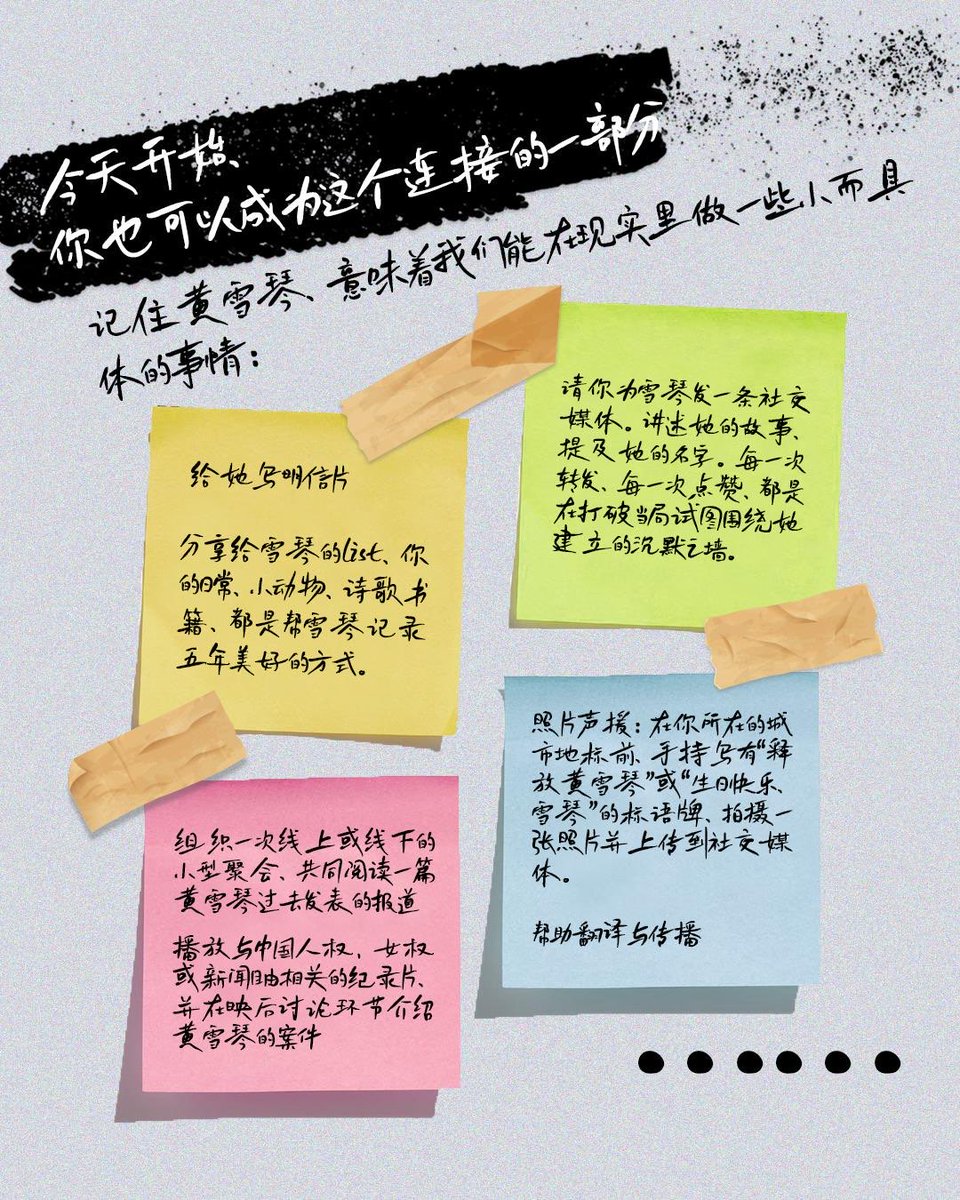 今天开始、
你也可以成为这个连接的一部分
记住黄雪琴、意味着我们能在现实里做一些小而具
体的事情：
给她写明信片
分享给雪琴的list、你
的日常、小动物、诗歌书
籍、都是帮雪琴记录
五年美好的方式。
请你为雪琴发一条社交
媒体。讲述她的故事、
提及她的名字。每一次
转发、每一次点赞、都是
在打破当局试图围绕她
建立的沉默之墙。
照片声援：在你所在的城
市地标前、手持写有“释
放黄雪琴”或“生日快乐、
雪琴”的标语牌、拍摄一
张照片并上传到社交媒
体。
帮助翻译与传播
组织一次线上或线下的
小型聚会、共同阅读一篇
黄雪琴过去发表的报道
播放与中国人权，女权
或新闻自由相关的纪录片、
并在映后讨论环节介绍
黄雪琴的案件